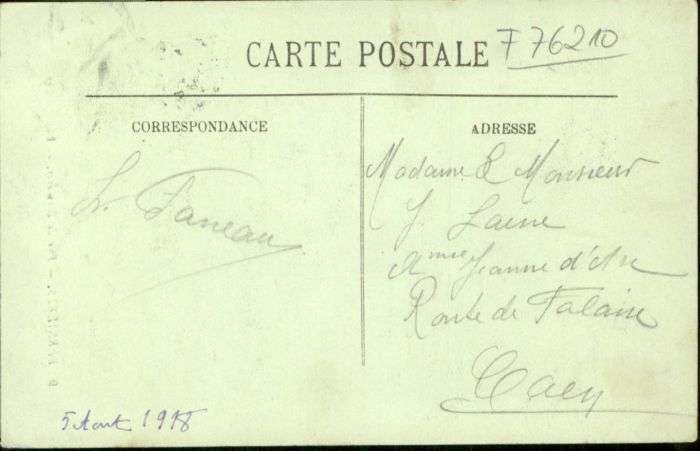 CARTE POSTALE
F 76210
CORRESPONDANCE
ADRESSE
L. Taneau
Madame & Monsieur
J. Laine
Jeanne d'Arc
Route de Falaise
Caen
5 Aout 1918